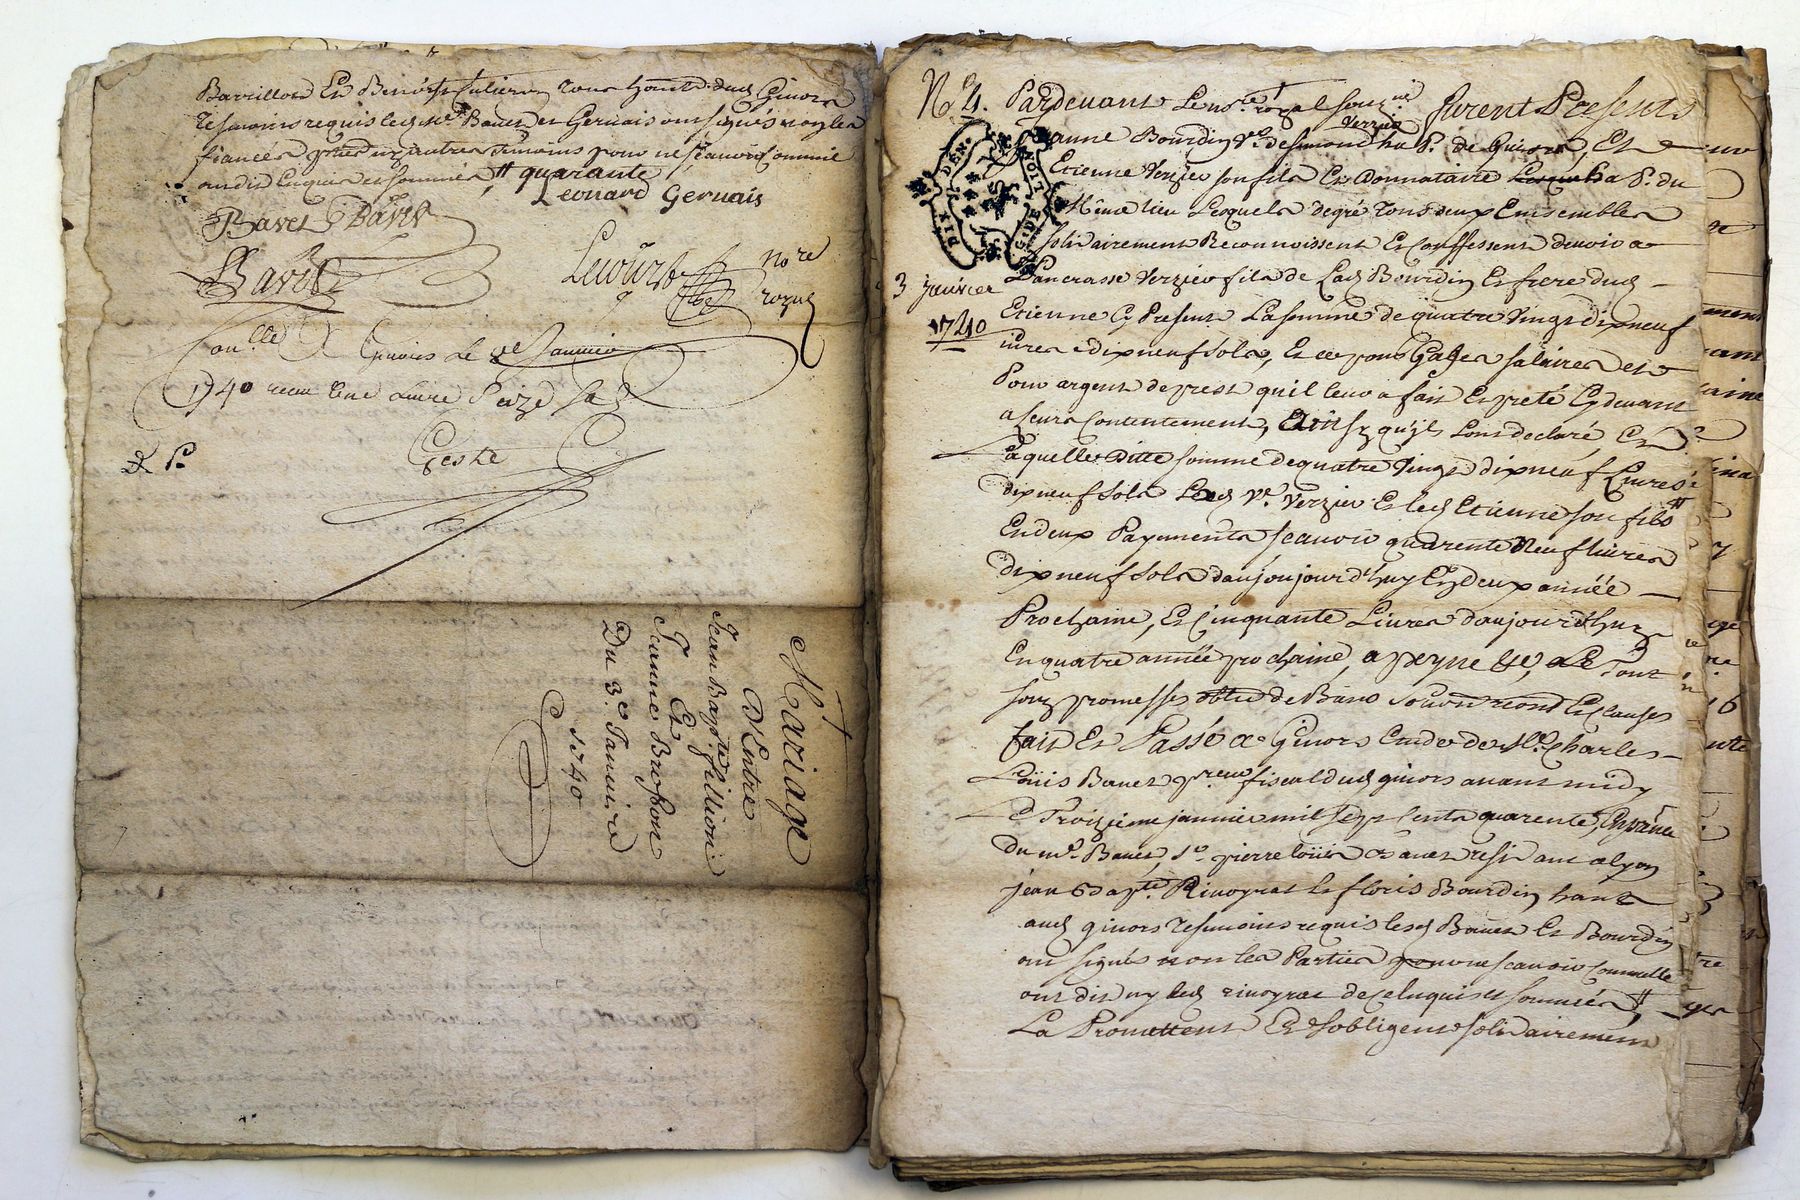 Barrillon Et Benoist Julieron tous habts dud Givors
tesmoins requis led Mr. Bavet et Gervais ont signés non les
fiancés autres témoins pour ne sçavoir comme
ont dit Enquis et sommés # quarante
Leonard Gervais
Bavet Bavet
Bavet
Lecourt Nore royal
Conlle A Givors le 9e Janvier
1740 recu Une Livre Seize sols
Geste
Mariage
D'Entre
Jean Bapte. fillion
Et
Jeanne Brosson
Du 3e. Janvier
1740
No 2. Pardevant Le nore. royal sousné furent Presents
verzieu
Jeanne Bourdin ve. de simond ha P. de Givors, Et
DIX DEN. NOIT GIDE
Etienne Verzieu son fils Et Donnataire ha P. du
Même lieu Lesquels de gré tous deux Ensembles
solidairement Reconnoissent Et Conffessent devoir a
3 janvier
1740
Pancrasse Verzieu fils de Lad Bourdin Et frere dud
Etienne Cy Present La somme de quatre Vingt dix neuf
livres dix neuf sols, Et ce pour Gages salaires et
Pour argent de prest qu'il leur a fait Et preté Cy devant
a Leurs Contentement, Ainsy qu'ils L'ont declaré, Et
Laquelle Ditte somme de quatre Vingt dix neuf Livres
dix neuf sols Lad Ve. Verzieu Et led Etienne son fils #
En deux Payements sçavoir quarente Neuf livres
dix neuf sols d'aujourd'huy En deux année
Prochaine, Et Cinquante Livres d'aujourd'huy
En quatre année prochaine, a peyne &c, Le Tout
sous promesses de Biens Et Clauses
fait Et Passé a Givors Etude de Me. Charles
Loüis Bavet preur fiscal dud givors avant midy
Le Troizieme janvier mil sept cents quarente, En prnce
du md. Bavet, Sr. pierre loüis Bavet resident a lyon
jean Bapte. Rivoyrat Et floris Bourdin habt
aud givors tesmoins requis lesd Bavet Et Bourdin
ont signés non les Parties pour ne sçavoir Comme elle
ont dit ny led rivoyrat de ce Enquis et sommés #
La Promettent Et s'obligent solidairement